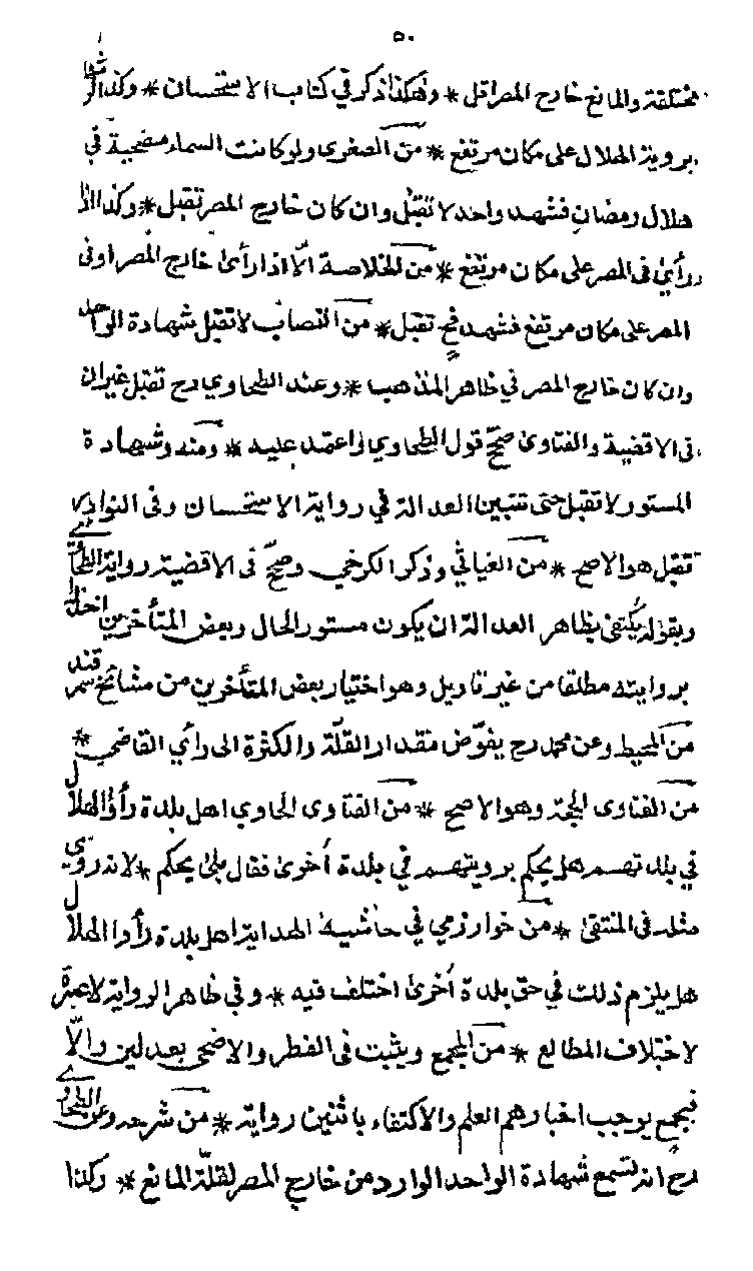 ٥٠
مختلفة والمانع خارج المصر اقل * وهكذا ذكر في كتاب الاستحسان * وكذا
برؤية الهلال على مكان مرتفع * من الصغرى ولو كانت السماء مضحية في
هلال رمضان فشهد واحد لا تقبل وان كان خارج المصر تقبل * وكذا اذا
رأى في المصر على مكان مرتفع * من الخلاصة الّا اذا رأى خارج المصر او في
المصر على مكان مرتفع فشهد فح تقبل * من النصاب لا تقبل شهادة الواحد
وان كان خارج المصر في ظاهر المذهب * وعند الطحاوي رح تقبل غير ان
في الاقضية والفتاوى صحّح قول الطحاوي اعتمد عليه * ومنه وشهادة
المستور لا تقبل حتى تتبين العدالة في رواية الاستحسان وفي النوادر
تقبل هو الاصح * من الغياثي وذكر الكرخي وصحّ في الاقضية رواية الطحاوي
وبقوله يكتفى بظاهر العدالة ان يكون مستور الحال وبعض المتأخرين اخذ
بروايته مطلقا من غير تاويل وهو اختيار بعض المتأخرين من مشائخ سمرقند
من المحيط وعن محمد رح يفوّض مقدار القلّة والكثرة الى رأي القاضي *
من الفتاوى الحجة وهو الاصح * من الفتاوى الحاوي اهل بلدة رأوا الهلال
في بلدتهم هل يحكم برؤيتهم في بلدة أخرى فقال بلى يحكم * لانه روي
مثله في المنتقى * من خوارزمي في حاشية الهداية اهل بلدة رأوا الهلال
هل يلزم ذلك في حق بلدة أخرى اختلف فيه * وفي ظاهر الرواية لا عبرة
لاختلاف المطالع * من المجمع ويثبت في الفطر والاضحى بعدلين والّا
فبجمع يوجب اخبارهم العلم والاكتفاء باثنين رواية * من شريعه وعن الطحاوي
رح انه تسمع شهادة الواحد الوارد من خارج المصر لقلّة المانع * وكذا